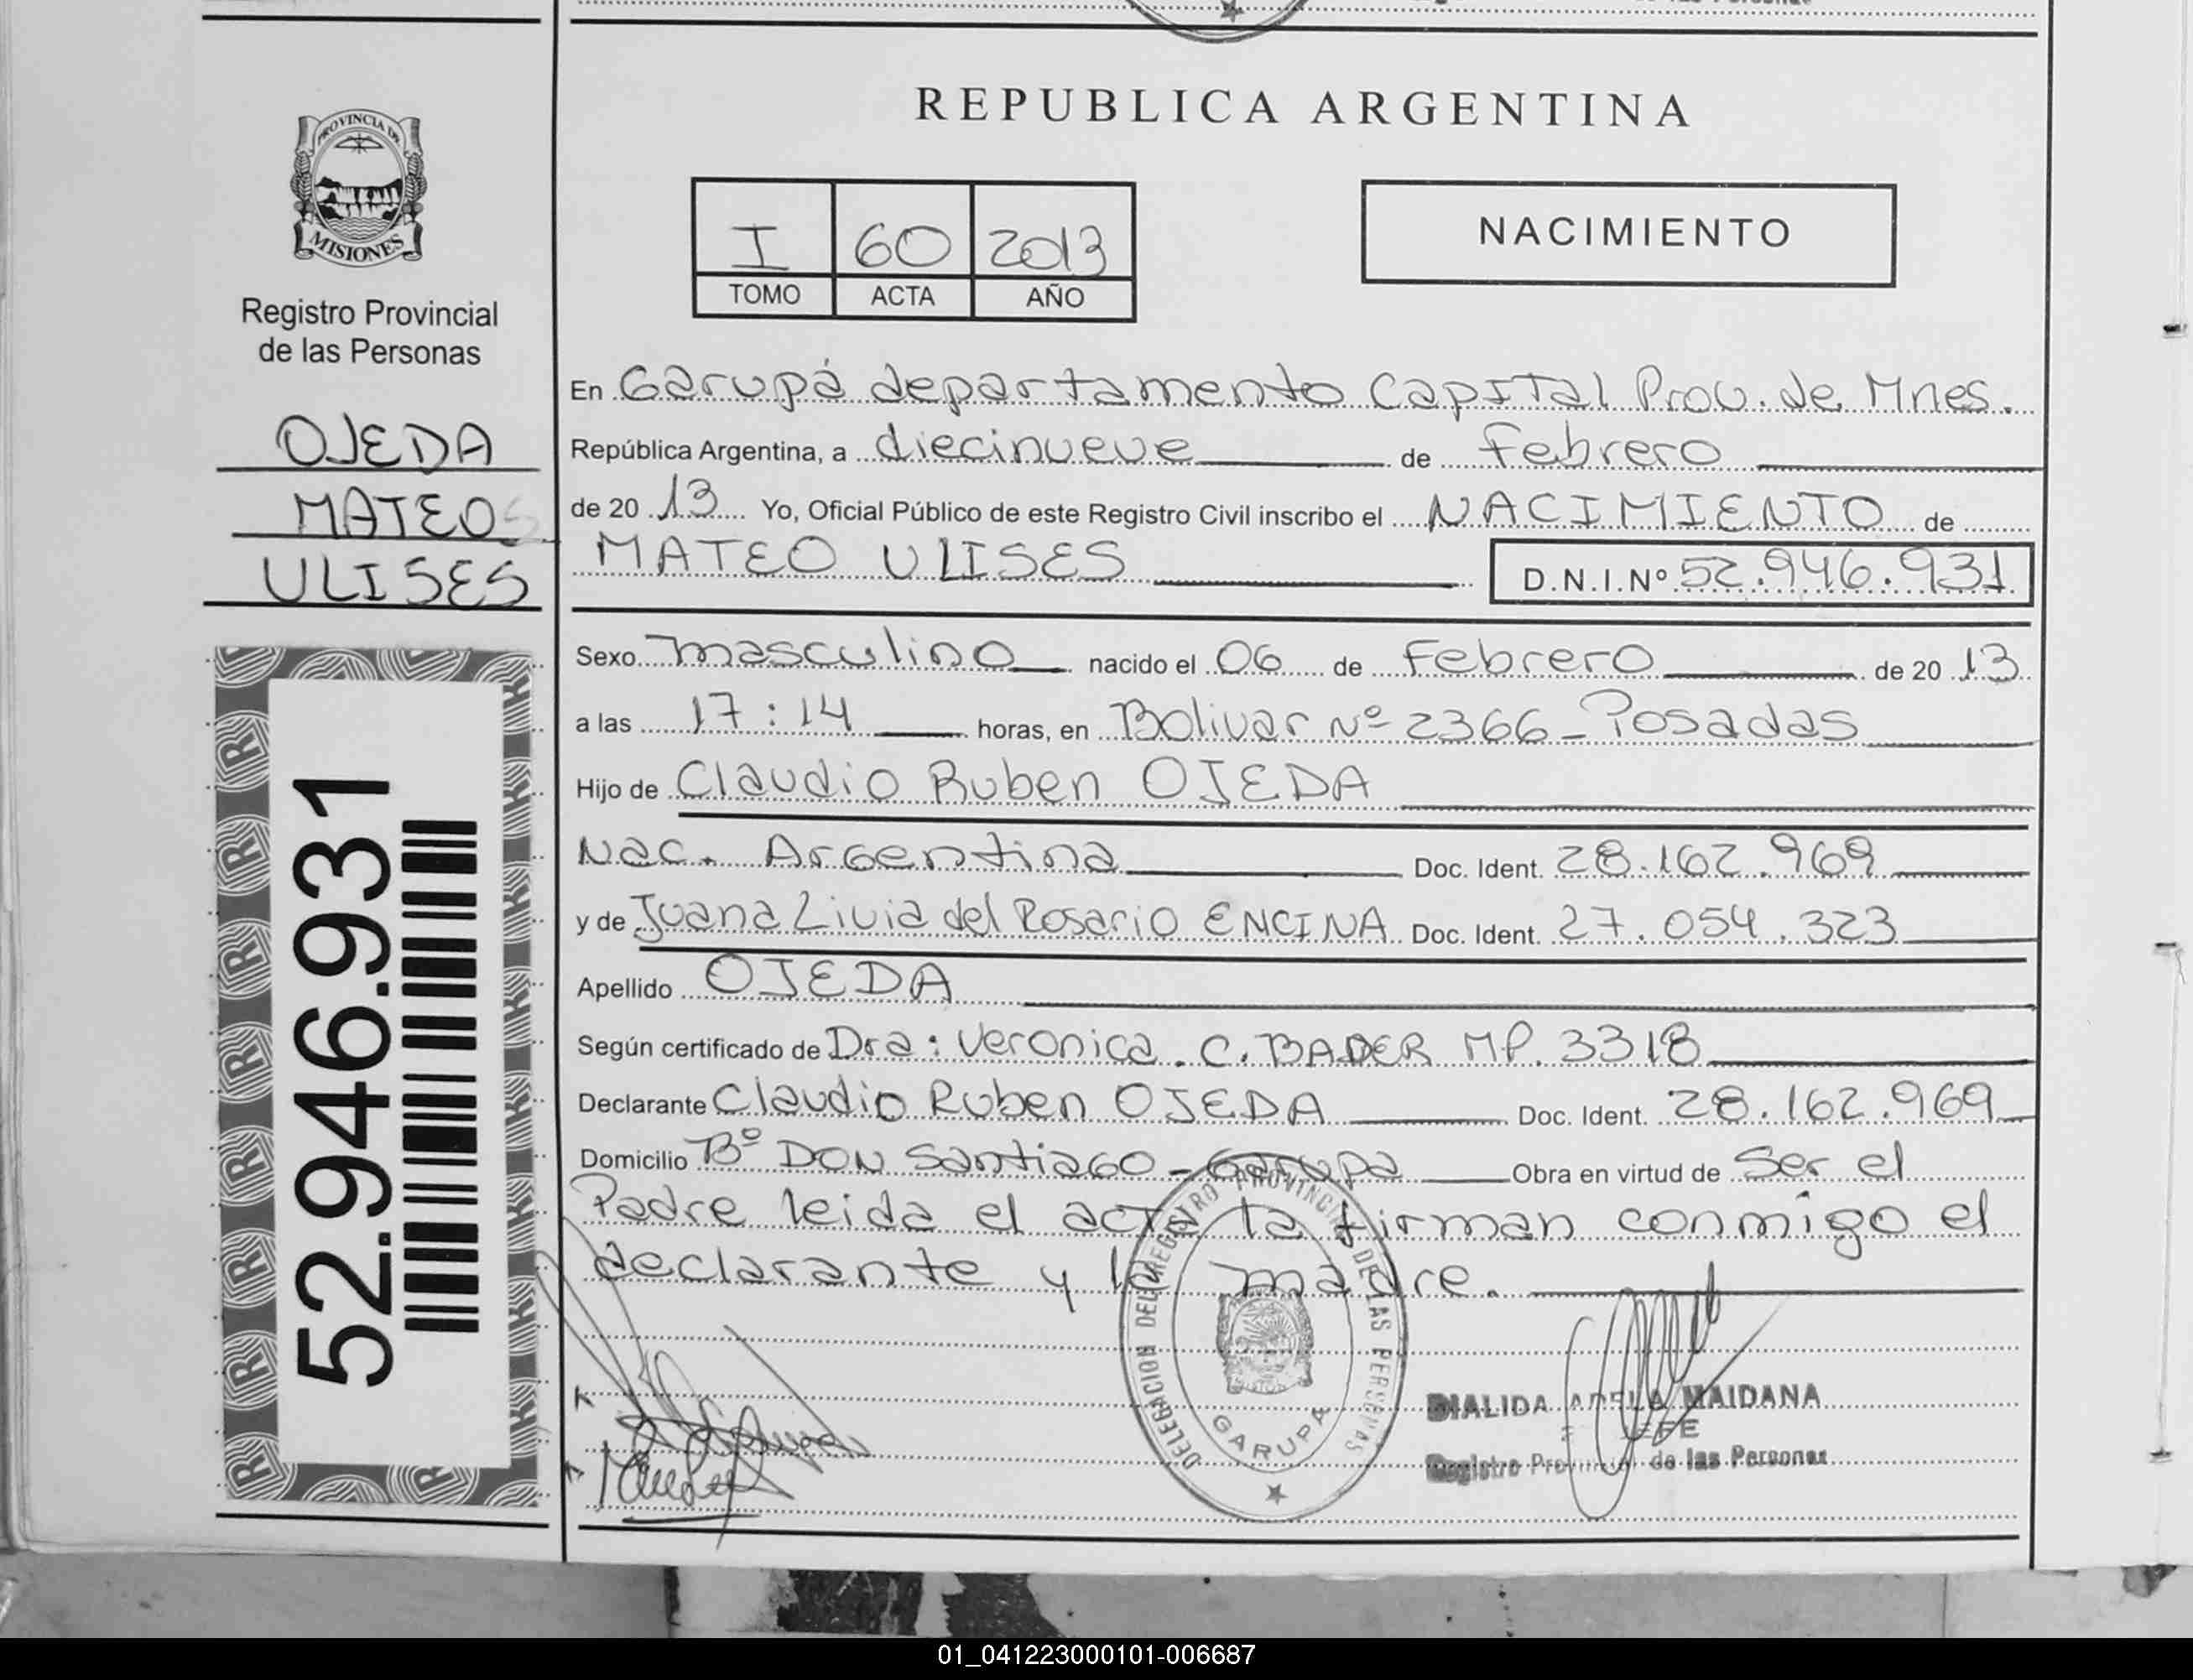 REPUBLICA ARGENTINA
PROVINCIA DE
MISIONES
Registro Provincial
de las Personas
OJEDA
MATEO
ULISES
52.946.931
I 60 2013
TOMO ACTA AÑO
NACIMIENTO
En Garupá departamento Capital Prov. de Mnes.
República Argentina, a diecinueve de febrero
de 20 13 Yo, Oficial Público de este Registro Civil inscribo el NACIMIENTO de
MATEO ULISES D.N.I.Nº 52.946.931
Sexo masculino nacido el 06 de Febrero de 20 13
a las 17:14 horas, en Bolivar Nº 2366 - Posadas
Hijo de Claudio Ruben OJEDA
Nac. Argentina Doc. Ident. 28.162.969
y de Juana Livia del Rosario ENCINA Doc. Ident. 27.054.323
Apellido OJEDA
Según certificado de Dra: Veronica. C. BADER MP. 3318
Declarante Claudio Ruben OJEDA Doc. Ident. 28.162.969
Domicilio Bº DON Santiago - Garupa Obra en virtud de Ser el
Padre leida el acta la firman conmigo el
declarante y la madre.
DELEGACION DEL REGISTRO PROVINCIAL DE LAS PERSONAS
GARUPA
DIALIDA ADELA MAIDANA
JEFE
Registro Provincial de las Personas
01_041223000101-006687